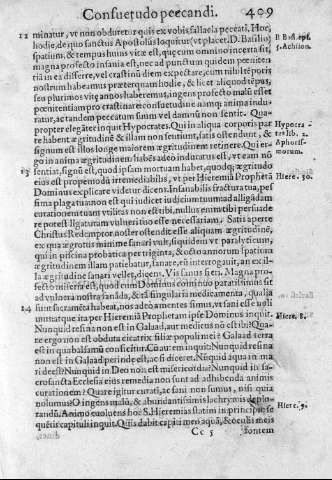 Consuetudo peccandi. 409
12 minatur, vt non obduretur quis ex vobis fallacia peccati, Hoc,
hodie, de quo sanctus Apostolus loquitur (vt placet D. Basilio)
spatium, & tempus huius vitæ est, quę cum omnino incerta sit,
magna profecto insania est, nec ad punctum quidem pœniten
tiã in ea differre, vel crastinũ diem expectare, cum nihil téporis
nostrum habeamus præterquam hodie, & licet aliquod tépus,
seu plurimos vitę annos haberemus, ingens profecto malũ esset
pœnitentiam procrastinare consuetudine namq; anima indu-
ratur, ac tandem peccatum suum vel damnũ non sentit. Qua-
propter eleganter inquit Hypocrates. Qui in aliqua corporis par
te habent ægritudinẽ & illam non sentiunt, satis ostendunt, &
signum est illos longe maiorem ægritudinem retinere. Qui er-
go in anima ægritudinem habẽs adeo induratus est, vt eam nõ
13 sentiat, signũ est, quod ipsam mortuam habet, quodq; ægritudo
eius est propemodũ irremediabilis, vt per Hieremiã Prophetã
Dominus explicare videtur dicens. Insanabilis fractura tua, pes
sima plaga tua non est qui iudicet iudicium tuum ad alligãdam
curationem tuam vtilitas non est tibi, nullus enim tibi persuade
re potest ligaturam vulneri tuo esse necessariam. Satis aperte
Christus Redemptor noster ostendit esse aliquam ægritudinẽ,
ex qua ægrotus minime sanari vult, siquidem vt paralyticum,
qui in piscina probatica per triginta, & octo annorum spatium
ægritudinem illam patiebatur, sanaret, eũ interrogauit, an ex il-
la ægritudine sanari vellet, dicens. Vis sanus fieri. Magna pro-
fecto miseria est, quod cum Dominus
ad vulnera nostra sanãda, & tã singularia medicamenta, qualia
14 sunt sacramẽta habeat, nos adeo amentes simus, vt sani esse
mur atque ita per Hieremiã Prophetam ipse Dominus inquit.
Nunquid resina non est in Galaad, aut medicus nõ est ibi? Qua-
re ergo non est obducta cicatrix filiæ populi mei? Galaad terra
est in qua balsamũ conficitur. Cũ autem inquit: Nunquid resina
non est in Galaad perinde est, ac si diceret. Núquid aqua in ma
ri deest? Nunquid in Deo non est misericordia? Nunquid in sa-
crosancta Ecclesia eius remedia non sunt ad adhibenda animis
curationem? Quare igitur curati, ac sani non sumus, nisi quia
nolumus? O ingens malũ, & abundantissimis lachrymis deplo-
randũ. Animo euoluens hoc S. Hieremias statim in principio se
quétis capituli inquit. Quis dabit capiti meo aquã, & oculis meis
Cc 5 fontem
Hypocra
Aphoris-
morum.
Hiere. 30.
Hiere. 8.
Hiere. 9.